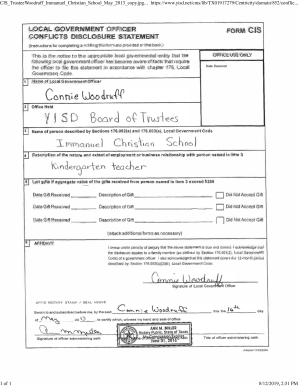 LOCAL GOVERNMENT OFFICER
CONFLICTS DISCLOSURE STATEMENT
FORM CIS
(Instructions for completing and filing this form are provided on the next page.)
This is the notice to the appropriate local governmental entity that the
following local government officer has become aware of facts that require
the officer to file this statement in accordance with chapter 176, Local
Government Code.
OFFICE USE ONLY
Date Received
1 Name of Local Government Officer
Connie Woodruff
2 Office Held
YISD Board of Trustees
3 Name of person described by Sections 176.002(a) and 176.003(a), Local Government Code
Immanuel Christian School
4 Description of the nature and extent of employment or business relationship with person named in item 3
Kindergarten teacher
5 List gifts if aggregate value of the gifts received from person named in item 3 exceed $250
Date Gift Received Description of Gift Did Not Accept Gift
Date Gift Received Description of Gift Did Not Accept Gift
Date Gift Received Description of Gift Did Not Accept Gift
(attach additional forms as necessary)
6 AFFIDAVIT
I swear under penalty of perjury that the above statement is true and correct. I acknowledge that
the disclosure applies to a family member (as defined by Section 176.001(2), Local Government
Code) of a government officer. I also acknowledge that this statement covers the 12-month period
described by Section 176.003(a), Local Government Code.
Connie Woodruff
Signature of Local Government Officer
AFFIX NOTARY STAMP / SEAL ABOVE
Sworn to and subscribed before me, by the said Connie Woodruff this the 16th day
of May, 20 13, to certify which, witness my hand and seal of office.
ANN M. MILLER
Notary Public, State of Texas
Signature of officer administering oath
Title of officer administering oath
1 of 1
8/12/2019, 2:01 PM